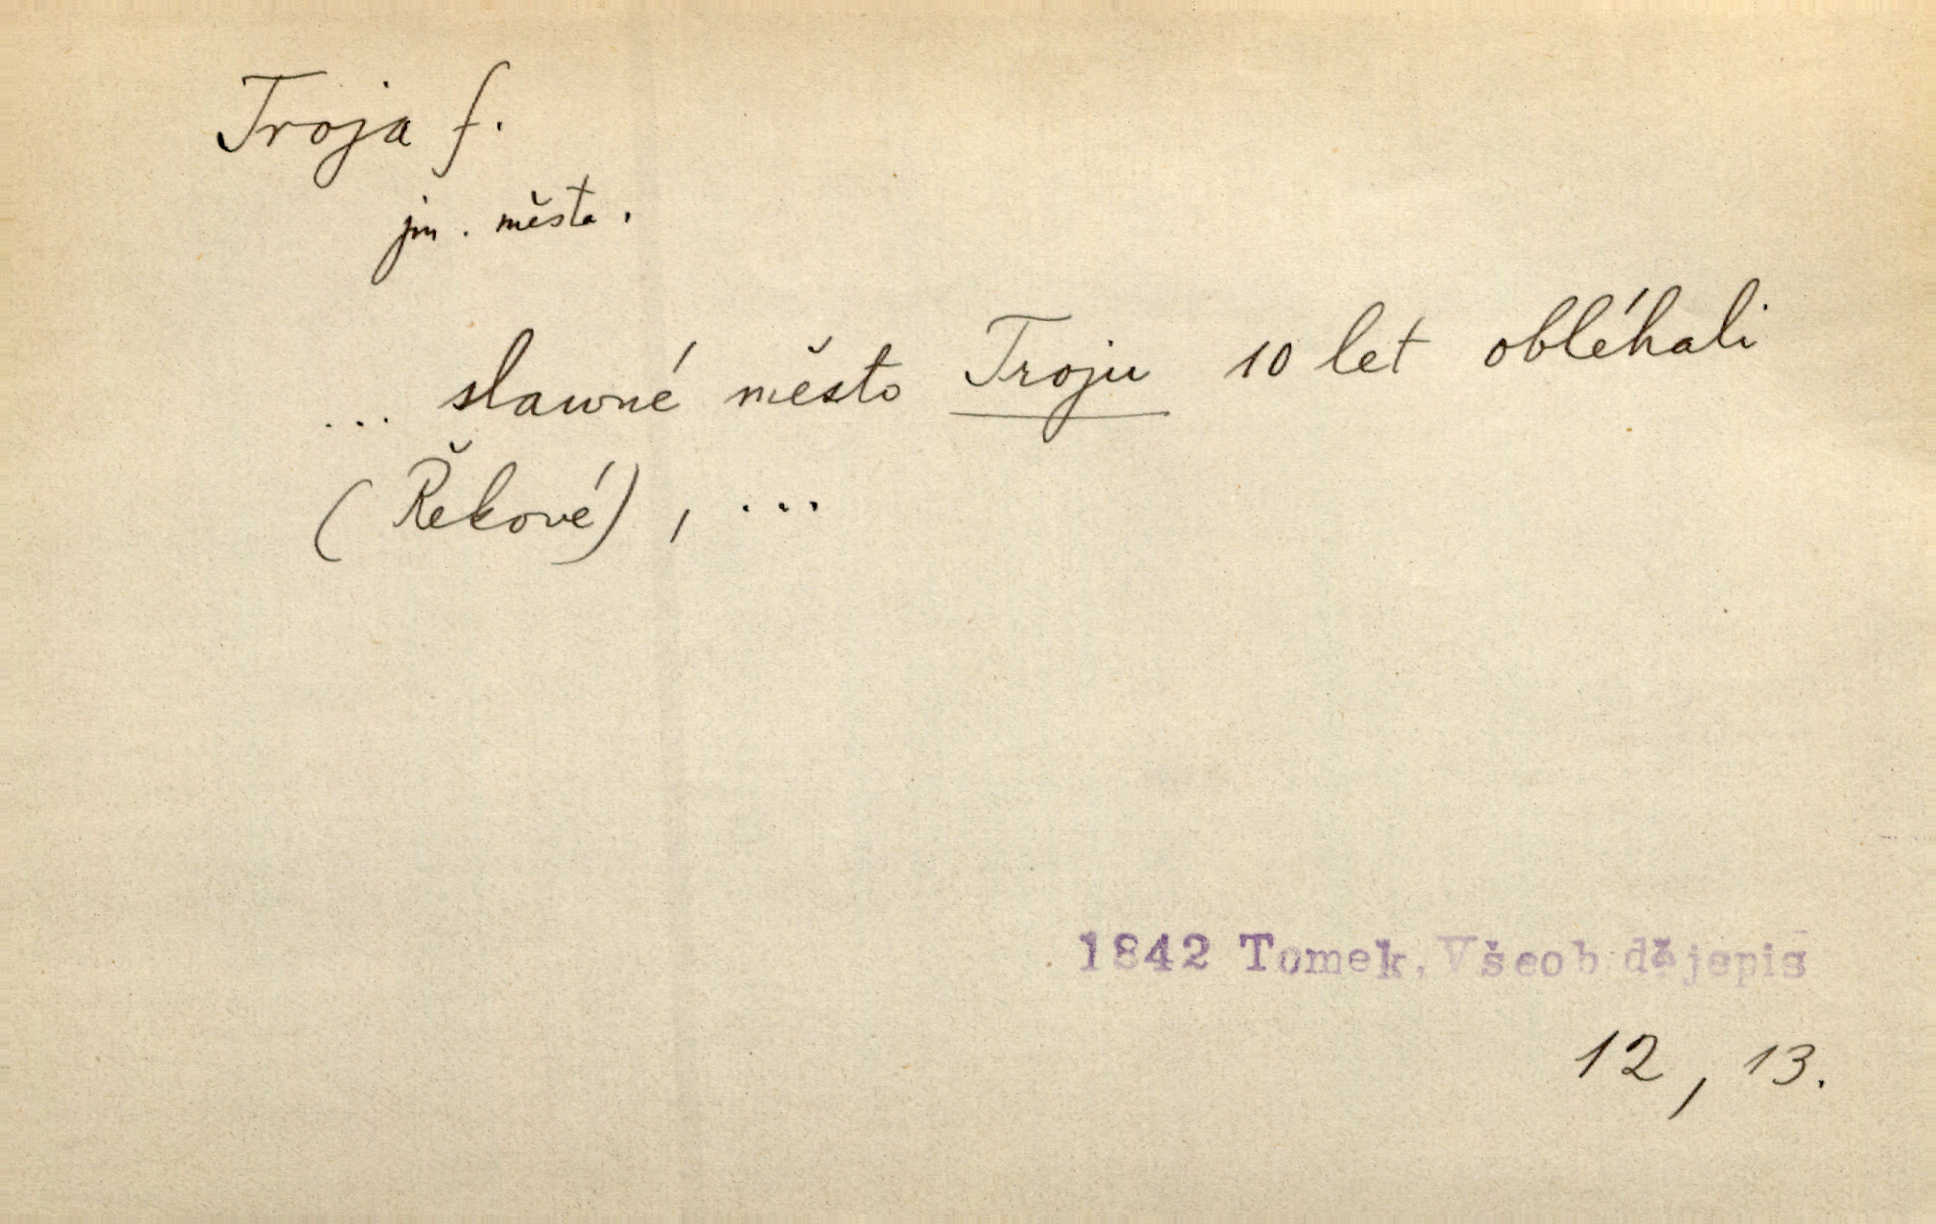 Troja f.
jm. města.
... slawné město Troju 10 let obléhali
(Řekové), ...
1842 Tomek, Všeob dějepis
12, 13.